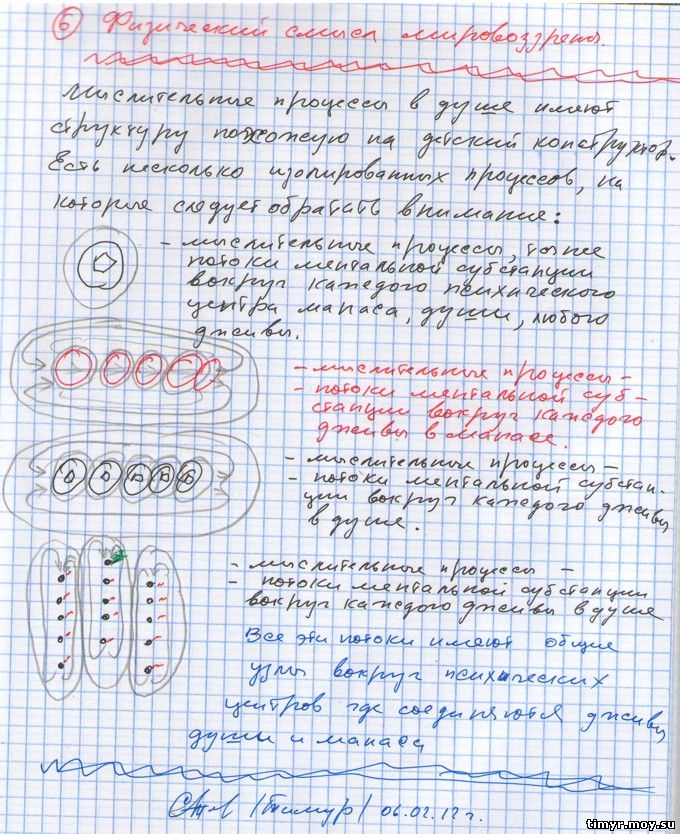 6 Физический смысл мировоззрения.
Мыслительные процессы в душе имеют
структуру похожую на детский конструктор.
Есть несколько изолированных процессов, на
которые следует обратать внимание:
- мыслительные процессы, точнее
потоки ментальной субстанции
вокруг каждого психического
центра манаса, души, любого
дживы.
- мыслительные процессы -
- потоки ментальной суб-
станции вокруг каждого
дживы в манасе.
- мыслительные процессы -
- потоки ментальной субстан-
ции вокруг каждого дживы
в душе.
- мыслительные процессы -
- потоки ментальной субстанции
вокруг каждого дживы в душе
Все эти потоки имеют общие
узлы вокруг психических
центров где соединяются дживы
души и манаса
/Тимур/ 06.02.12 г.
timyr.moy.su